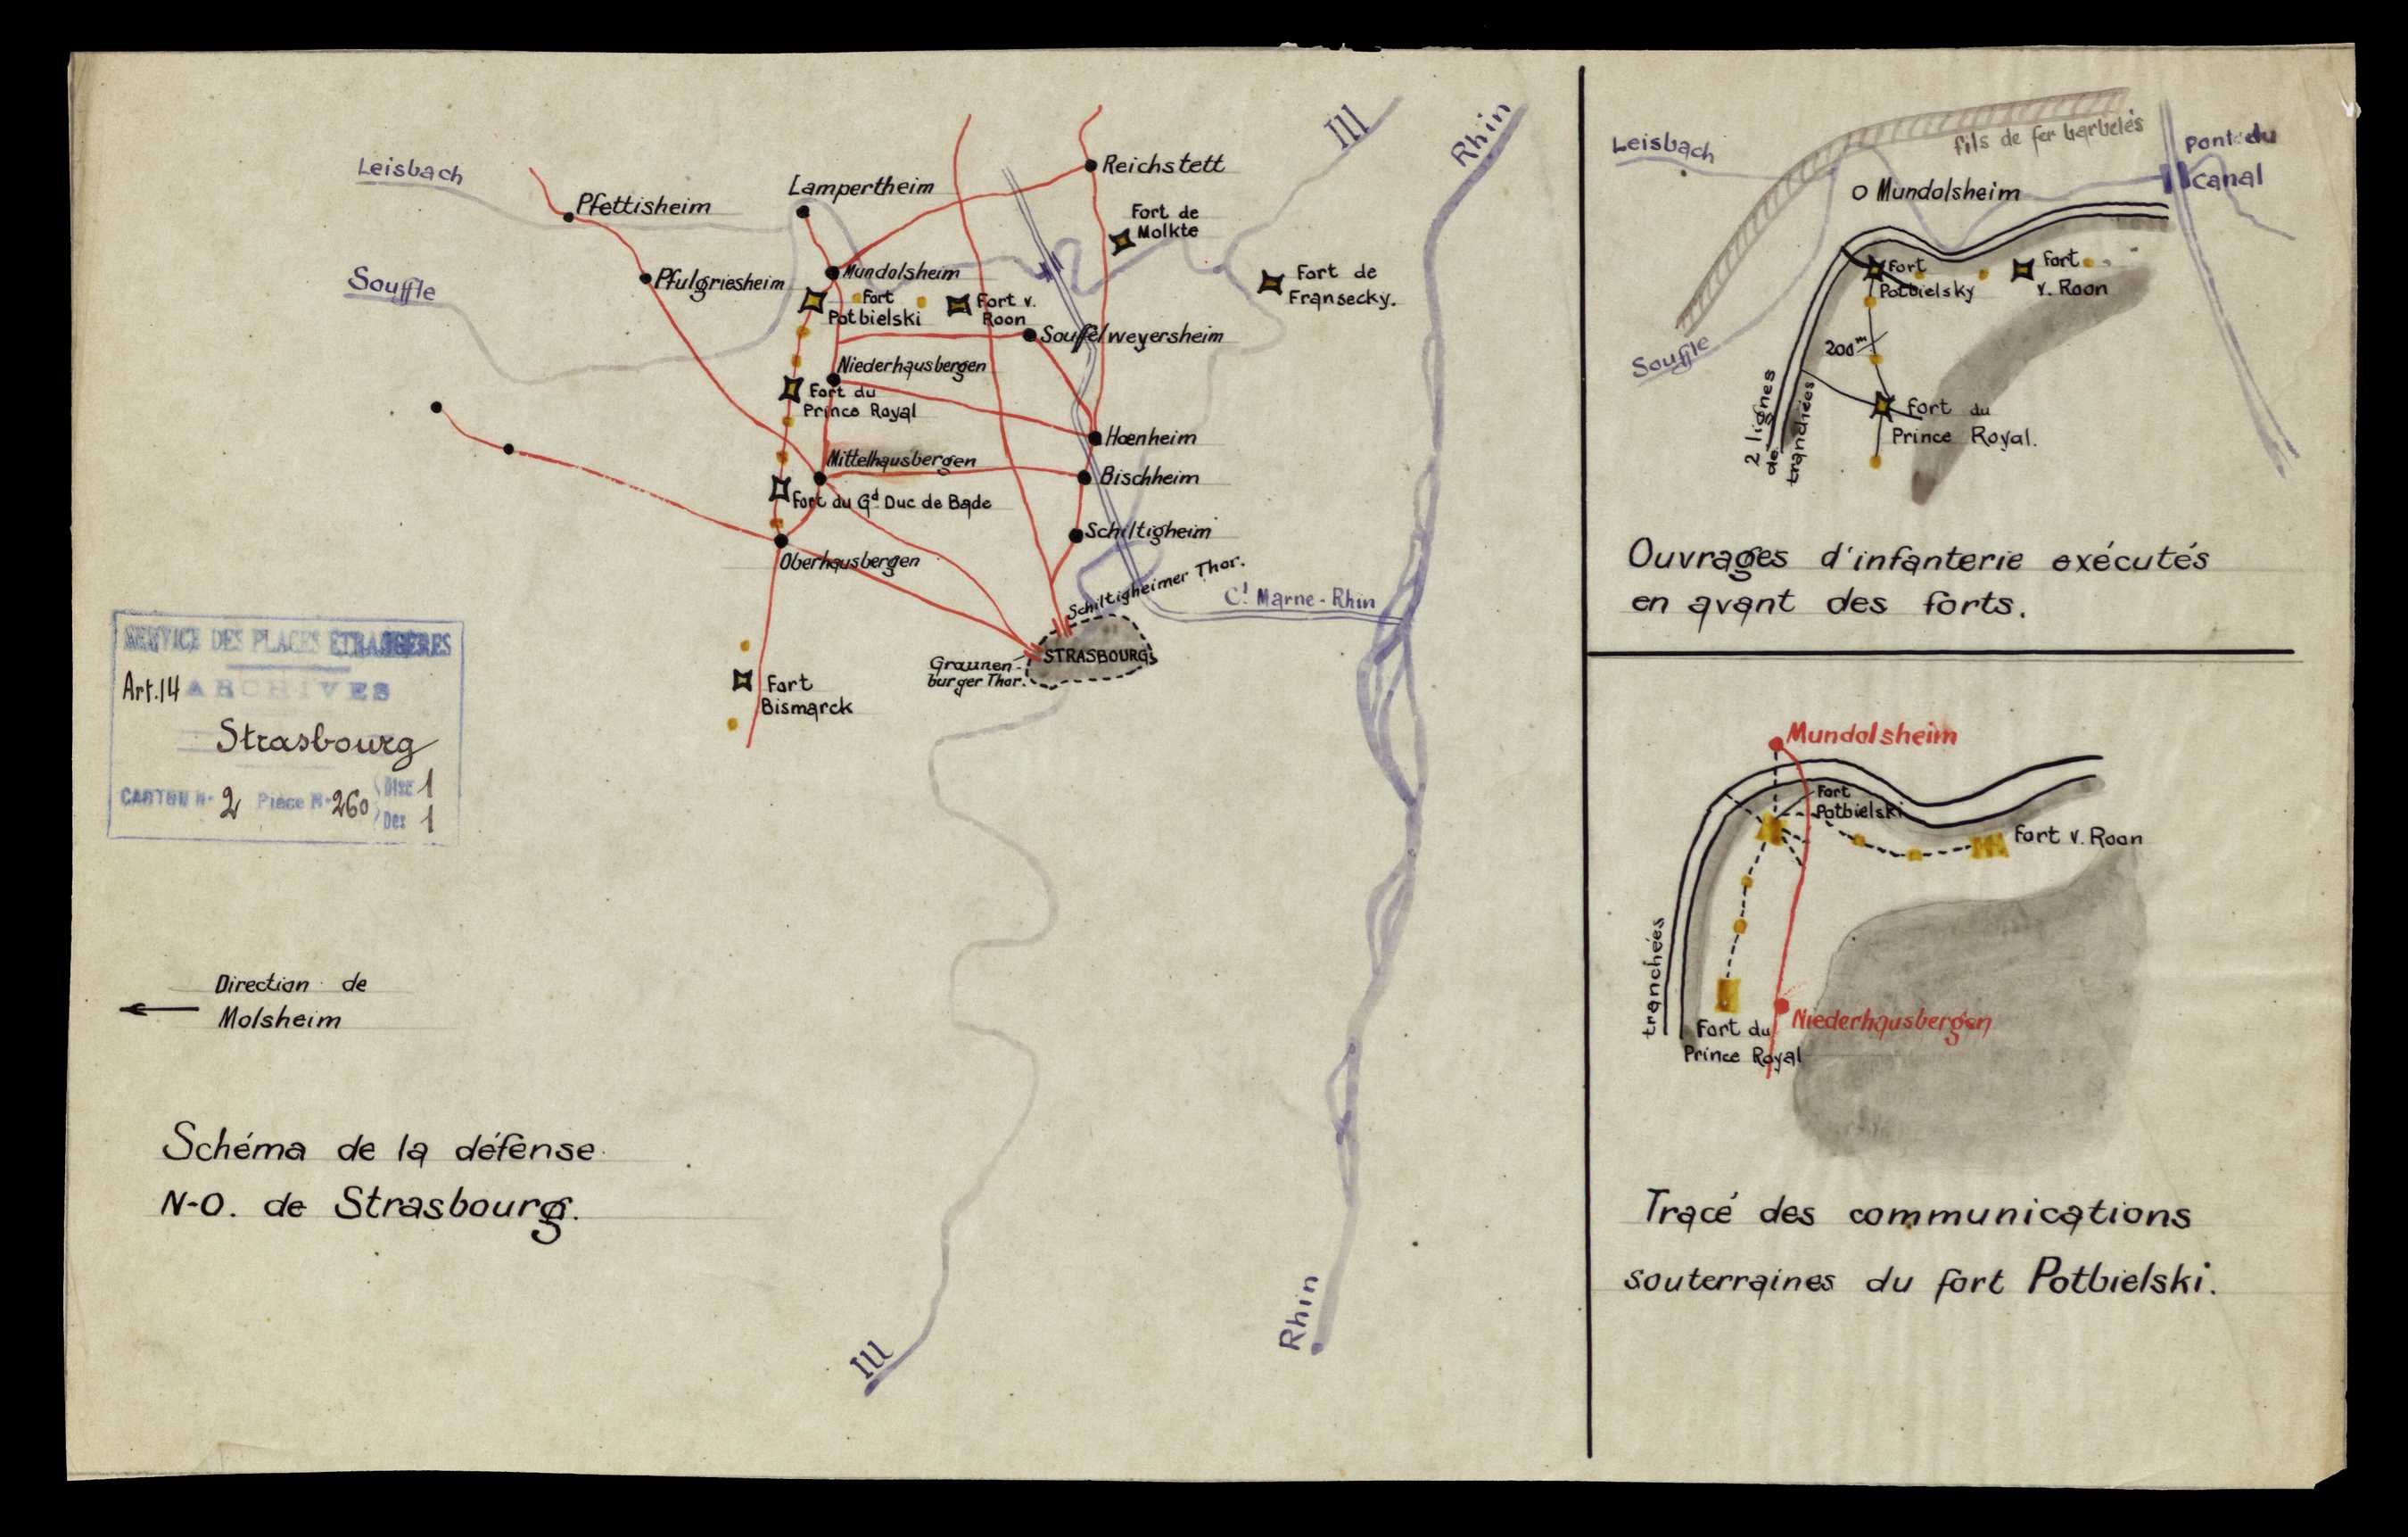 Leisbach
Pfettisheim
Lampertheim
Reichstett
Ill
Rhin
Fort de
Molkte
Souffle
Pfulgriesheim
Mundolsheim
Fort
Potbielski
Fort v.
Roon
Fort de
Fransecky.
Souffelweyersheim
Niederhausbergen
Fort du
Prince Royal
Hœnheim
Mittelhausbergen
Bischheim
Fort du Gd Duc de Bade
Schiltigheim
Oberhausbergen
Schiltigheimer Thor.
Cl Marne-Rhin
STRASBOURG
Graunen-
burger Thor.
Fort
Bismarck
SERVICE DES PLACES ÉTRANGÈRES
Art.14 ARCHIVES
Strasbourg
CARTON No 2 Pièce No 260
1
Des 1
Direction de
Molsheim
Schéma de la défense
N-O. de Strasbourg.
Ill
Rhin
Leisbach
fils de fer barbelés
Pont du
Canal
Mundolsheim
Fort
Potbielsky
Fort
v. Roon
Souffle
200m
2 lignes
de
tranchées
Fort du
Prince Royal.
Ouvrages d'infanterie exécutés
en avant des forts.
Mundolsheim
Fort
Potbielski
Fort v. Roon
tranchées
Niederhausbergen
Fort du
Prince Royal
Tracé des communications
souterraines du fort Potbielski.